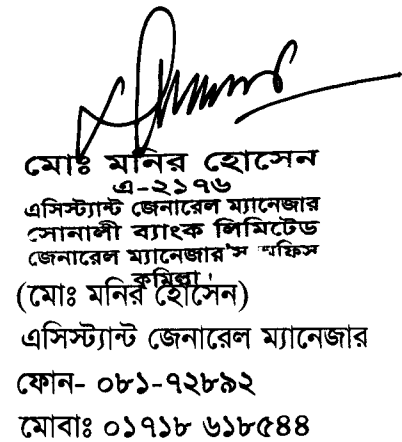 মোঃ মনির হোসেন
এ-২১৭৬
এসিস্ট্যান্ট জেনারেল ম্যানেজার
সোনালী ব্যাংক লিমিটেড
জেনারেল ম্যানেজার'স অফিস
কুমিল্লা।
(মোঃ মনির হোসেন)
এসিস্ট্যান্ট জেনারেল ম্যানেজার
ফোন- ০৮১-৭২৮৯২
মোবাঃ ০১৭১৮ ৬১৮৫৪৪